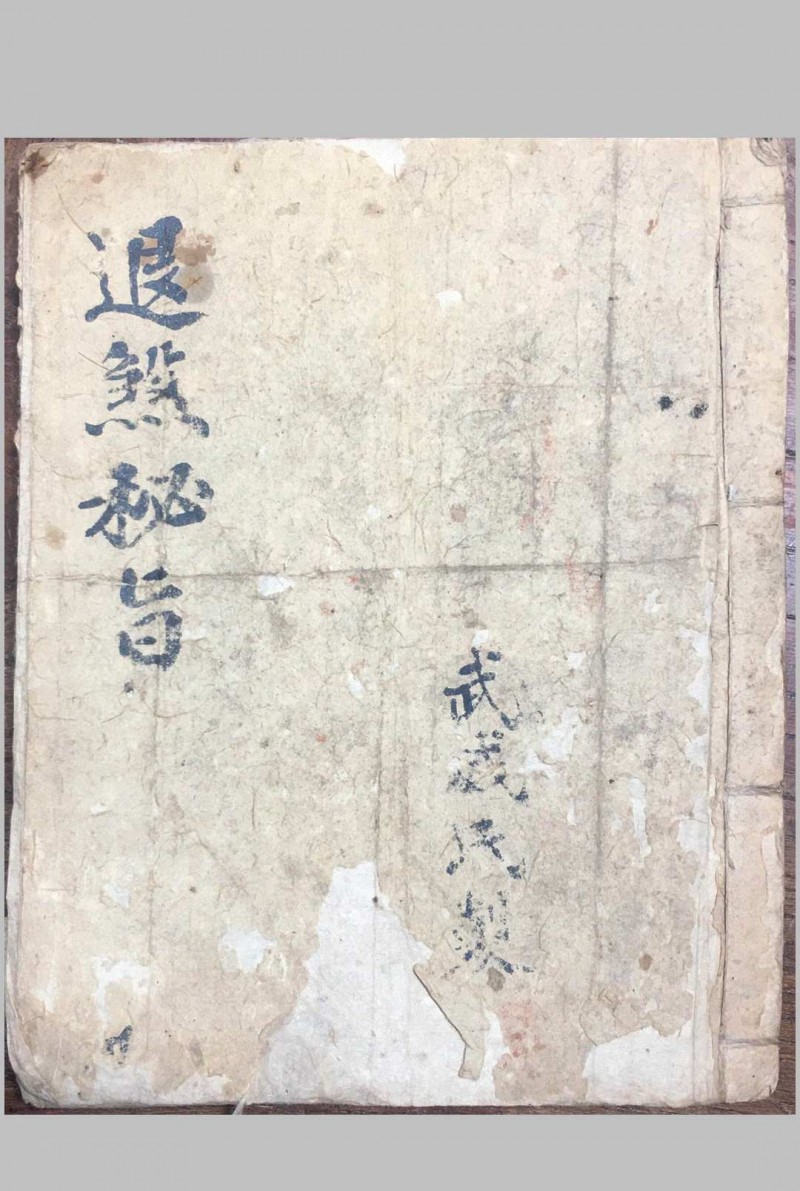 退煞秘旨
武威氏製